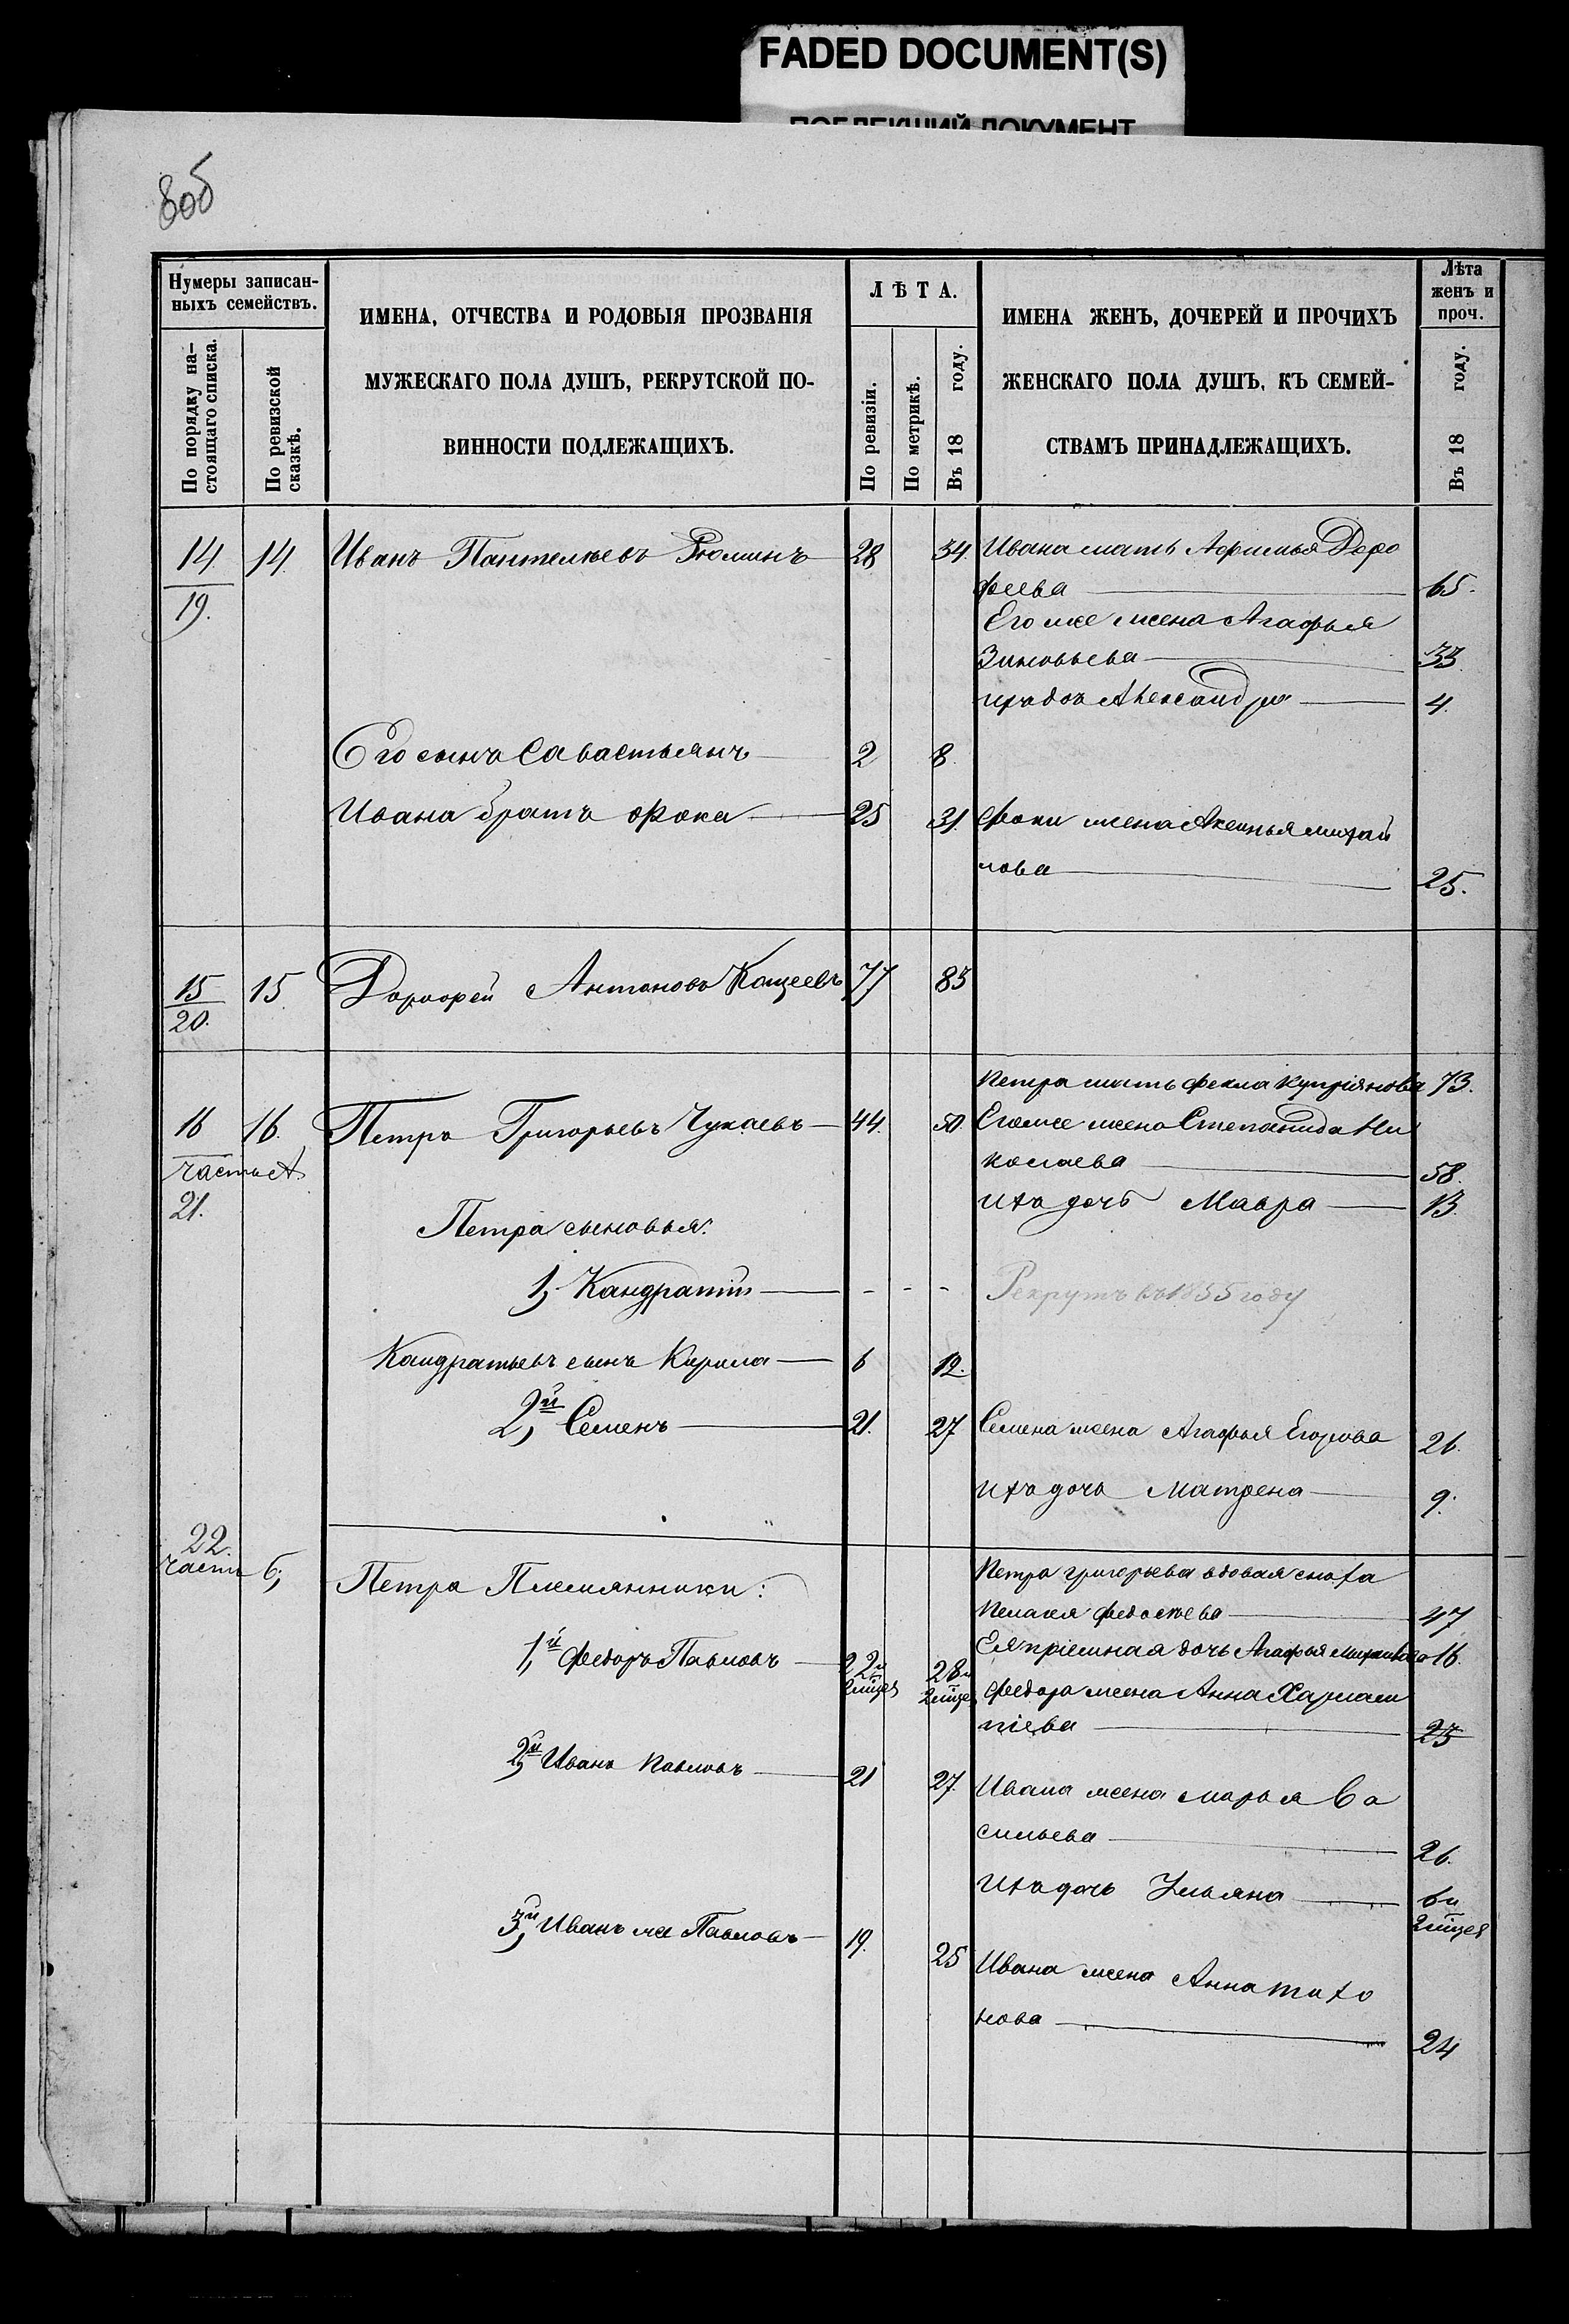 FADED DOCUMENT(S)
ПОБЛЕКШИЙ ДОКУМЕНТ
8об
Нумеры записан-
ныхъ семействъ.
По порядку на-
стоящаго списка.
По ревизской
сказкѣ.
ИМЕНА, ОТЧЕСТВА И РОДОВЫЯ ПРОЗВАНІЯ
МУЖЕСКАГО ПОЛА ДУШЪ, РЕКРУТСКОЙ ПО-
ВИННОСТИ ПОДЛЕЖАЩИХЪ.
ЛѢТА.
По ревизіи.
По метрикѣ.
Въ 18 году.
ИМЕНА ЖЕНЪ, ДОЧЕРЕЙ И ПРОЧИХЪ
ЖЕНСКАГО ПОЛА ДУШЪ, КЪ СЕМЕЙ-
СТВАМЪ ПРИНАДЛЕЖАЩИХЪ.
Лѣта
женъ и
проч.
Въ 18 году.
14 14. Иванъ Пантелѣевъ Рюминъ 28 34 Ивана мать Афимья Доро
19.
феева 65.
Его же жена Агафья
Зиновьева 33.
ихъ дочь Александра 4.
Его сынъ Савастьянъ 2 8.
Ивана братъ Фока 25 31. Фоки жена Аксинья михай
лова 25.
15 15. Дорофей Антоновъ Кощеевъ 77 83
20.
Петра мать фекла купріянова 73.
16 16. Петръ Григорьевъ Чукаевъ 44. 50. Его же жена Степанида Ни
часть А
колаева 58.
21.
ихъ дочь Мавра 13.
Петра сыновья:
1, Кандратій - - - Рекрутъ въ 1855 году
Кандратьевъ сынъ Кирила 6 12.
2й, Семенъ 21. 27 Семена жена Агафья Егорова 26.
ихъ дочь Матрена 9.
22.
часть б, Петра Племянники:
Петра григорьева вдовая сноха
Пелагея федосѣева 47
1,й Федоръ Павловъ 22и 28и Ея пріемная дочь Агафья 16.
2мцея 2мцея федора жена Анна Харлам
піева 25
2,й Иванъ Павловъ 21 27. Ивана жена марья Ва
сильева 26.
ихъ дочь Ульяна 6и
2мцея
3,й Иванъ же Павловъ 19. 25 Ивана жена Анна тихо
нова 24